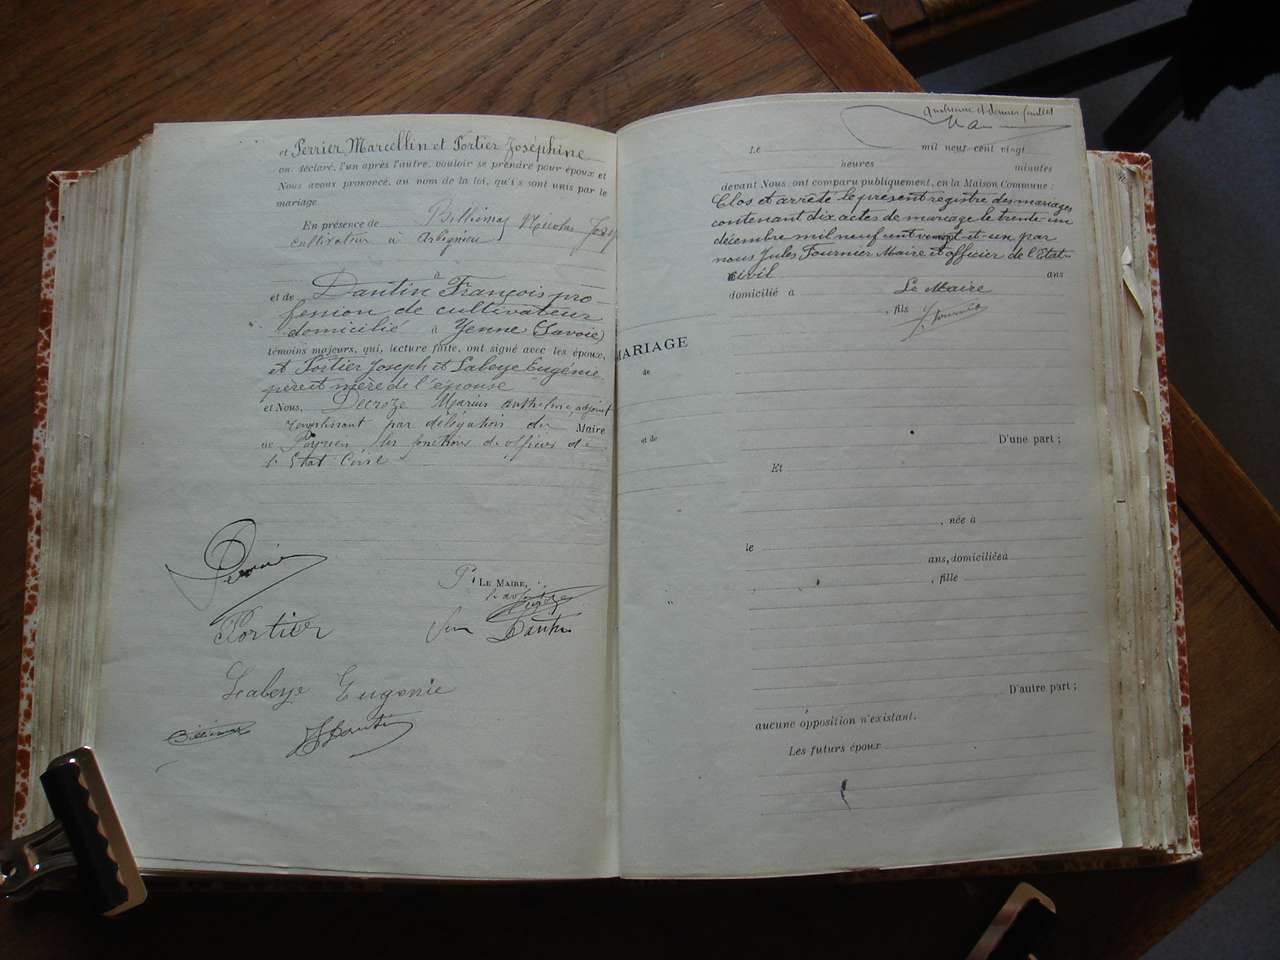 et Perrier Marcellin et Portier Joséphine
ont déclaré, l'un après l'autre, vouloir se prendre pour époux et
Nous avons prononcé, au nom de la loi, qu'ils sont unis par le
mariage.
En présence de Billiemaz Nicolas
Cultivateur à Arbignieu
à
et de Dantin François pro
fession de cultivateur
domicilié à Yenne (Savoie)
témoins majeurs, qui, lecture faite, ont signé avec les époux,
et Portier Joseph et Labeye Eugénie
père et mère de l'épouse
et Nous, Decroze Marius Anthelme, adjoint
remplissant par délégation du Maire
de Peyrieu les fonctions d'officier de
l'Etat Civil
Pr LE MAIRE,
Perrier
Portier
Labeye Eugenie
Dantin
Le mil neuf cent vingt
heures minutes
devant Nous ont comparu publiquement, en la Maison Commune :
Clos et arrêté le présent registre des mariages
contenant dix actes de mariage le trente-un
décembre mil neuf cent vingt et un par
nous Jules Fournier Maire et officier de l'Etat-
civil ans
domicilié à Le Maire
, fils J. Fournier
MARIAGE
de
et de
D'une part ;
Et
, née à
le
ans, domiciliée à
, fille
D'autre part ;
aucune opposition n'existant.
Les futurs époux